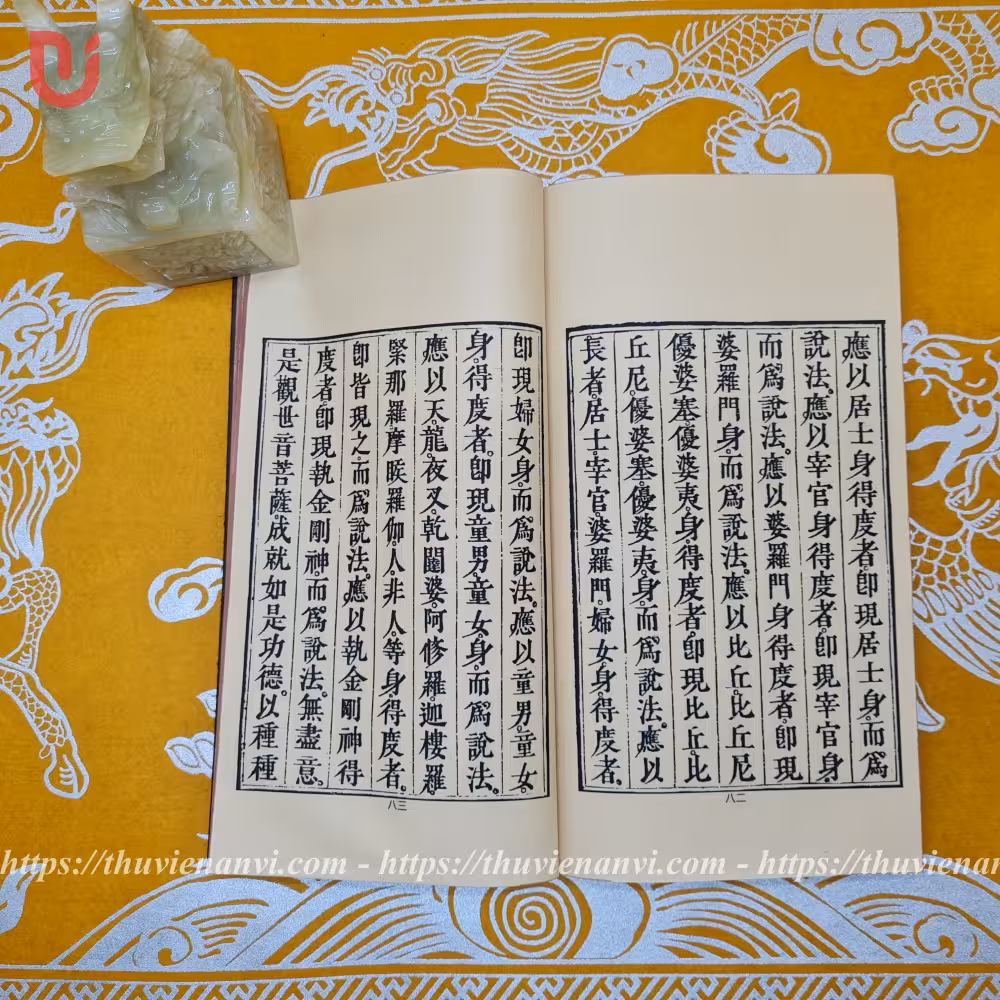 應以居士身得度者。卽現居士身。而爲
說法。應以宰官身得度者。卽現宰官身。
而爲說法。應以婆羅門身得度者。卽現
婆羅門身。而爲說法。應以比丘。比丘尼
優婆塞。優婆夷。身得度者。卽現比丘。比
丘尼。優婆塞。優婆夷。身。而爲說法。應以
長者。居士。宰官。婆羅門。婦女。身得度者。
八二
卽現婦女身。而爲說法。應以童男。童女。
身。得度者。卽現童男。童女。身。而爲說法。
應以天。龍。夜叉。乾闥婆。阿修羅。迦樓羅。
緊那羅摩睺羅伽。人。非人。等身得度者。
卽皆現之。而爲說法。應以執金剛神得
度者。卽現執金剛神。而爲說法。無盡意。
是觀世音菩薩。成就如是功德。以種種
八三
https://thuvienanvi.com - https://thuvienanvi.com - https://thuvienan